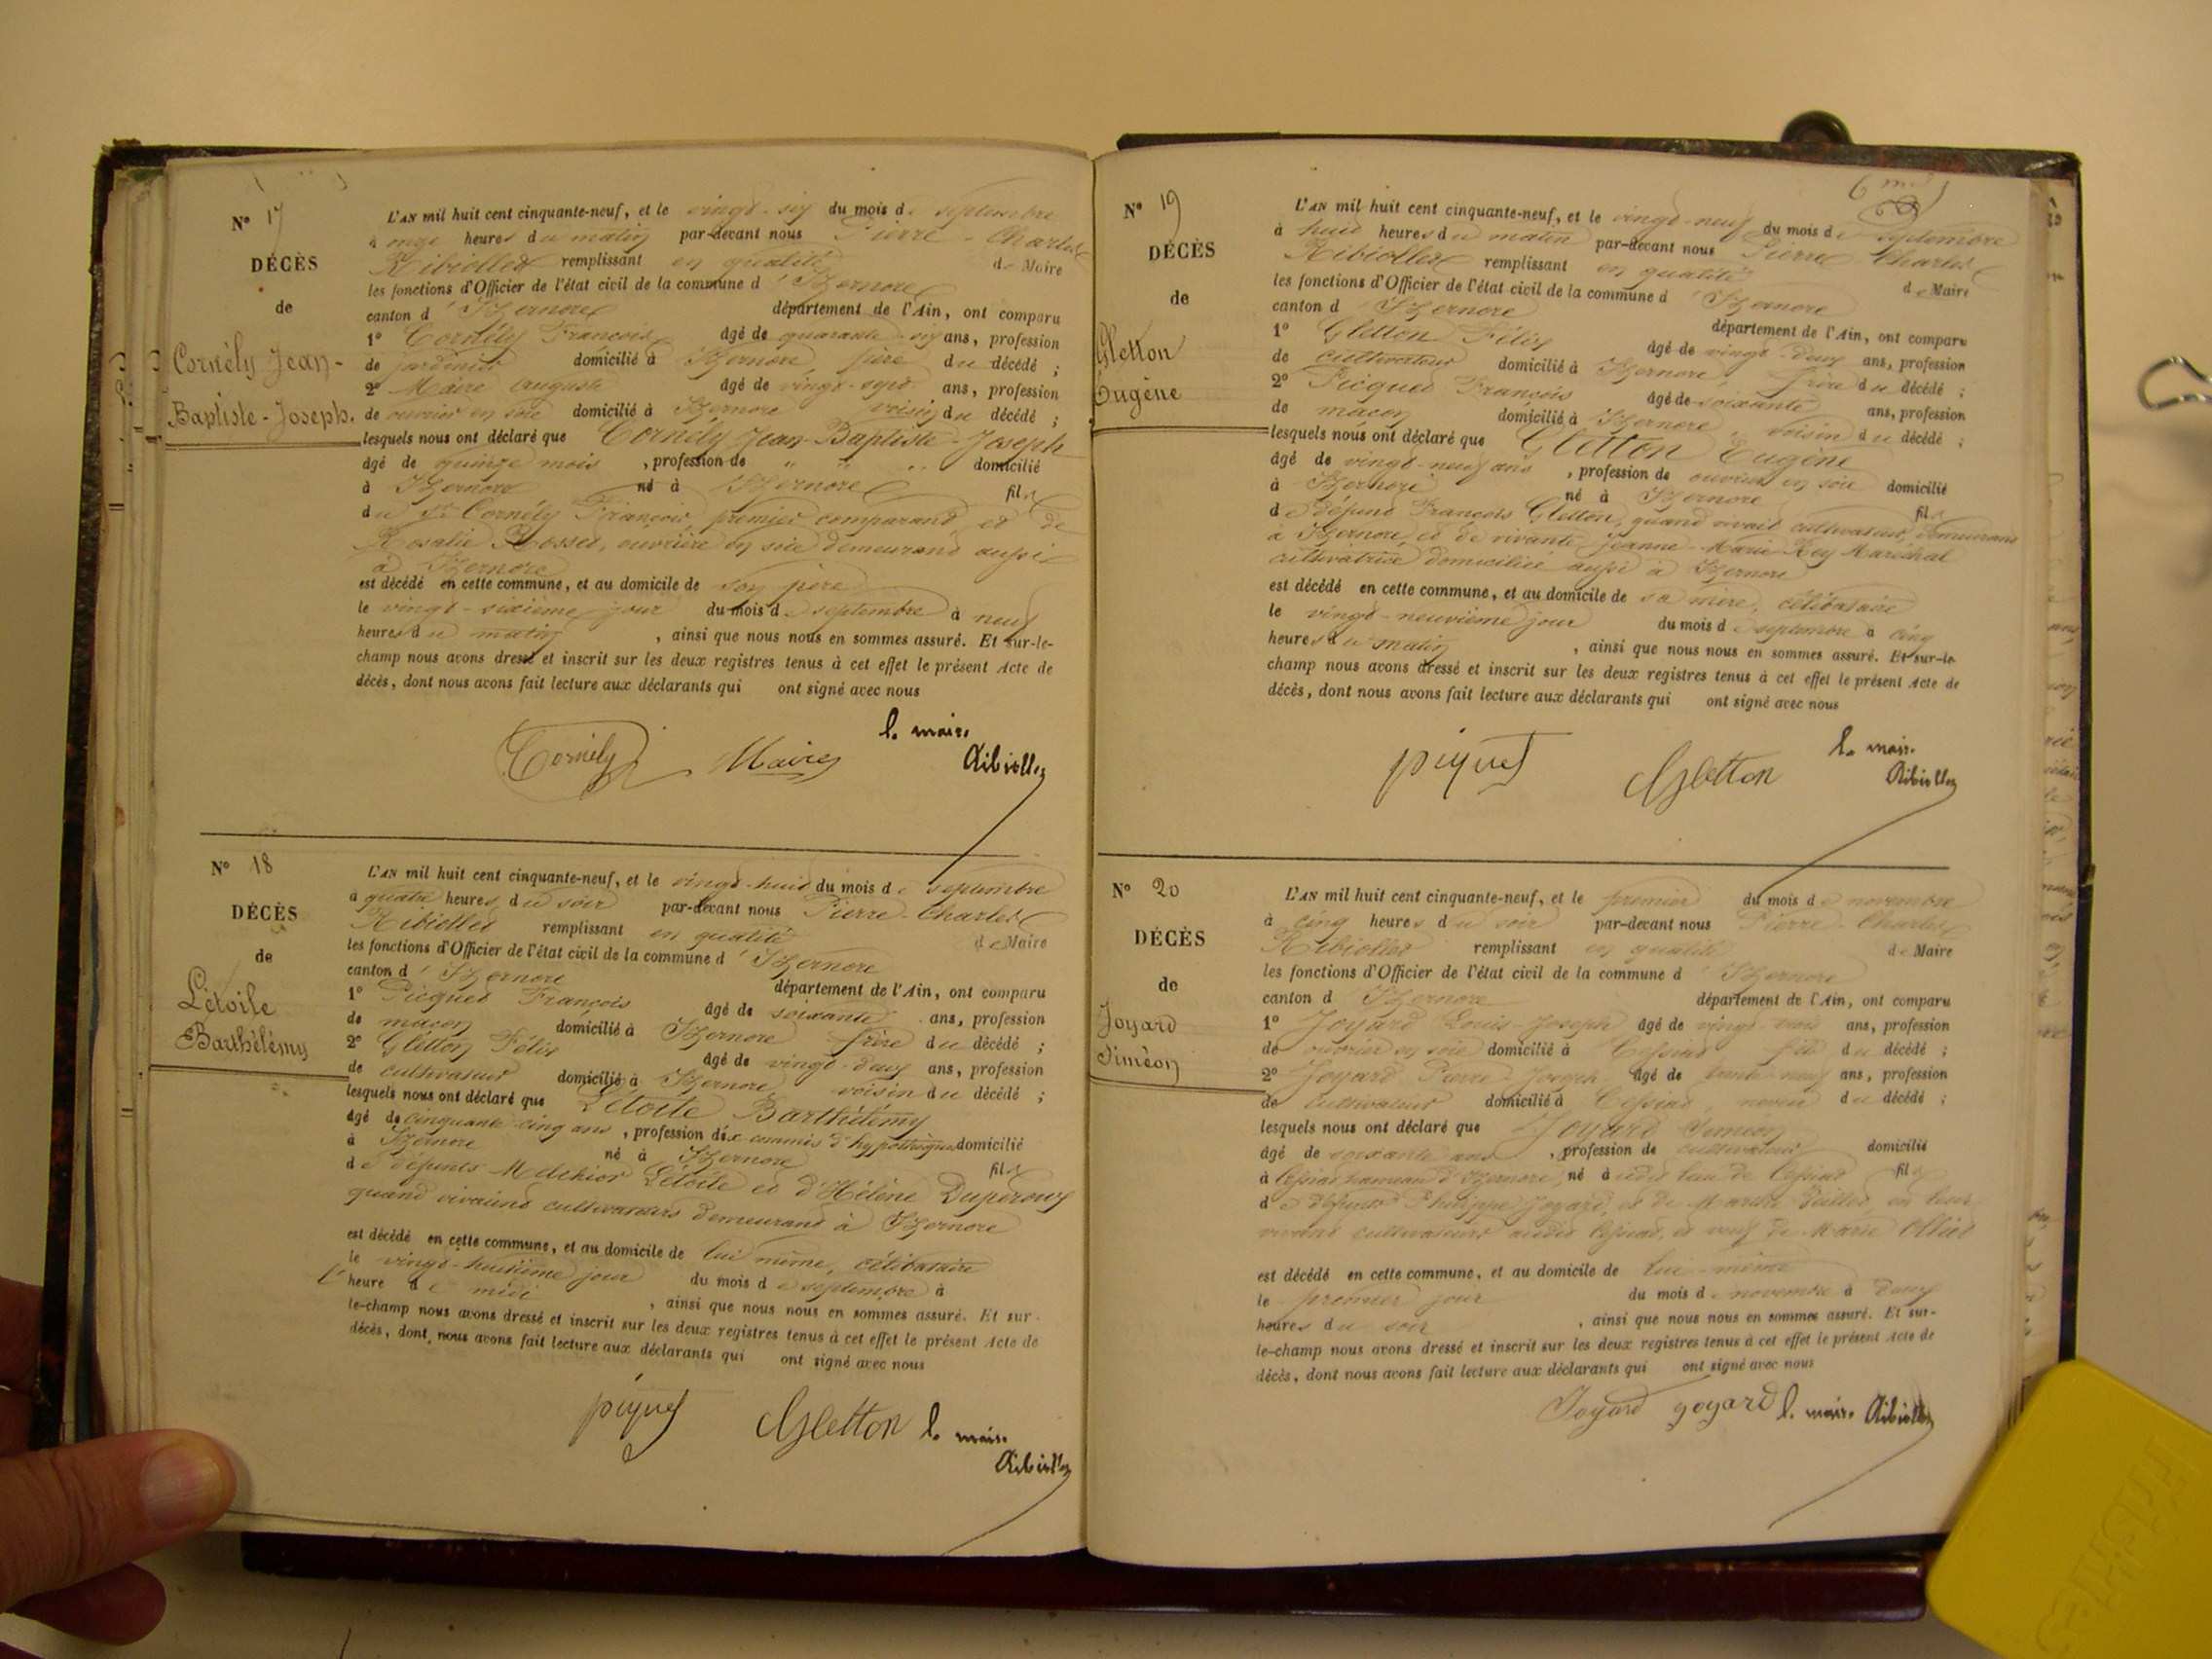 N° 17
DÉCÈS
de
Cornély Jean-
Baptiste-Joseph.
L'AN mil huit cent cinquante-neuf, et le vingt-six du mois de septembre
à onze heures du matin par-devant nous Pierre-Charles
Ribiollet remplissant en qualité de Maire
les fonctions d'Officier de l'état civil de la commune d'Izernore
canton d'Izernore département de l'Ain, ont comparu
1° Cornély François âgé de quarante-six ans, profession
de jardinier domicilié à Izernore, père du décédé ;
2° Maire Auguste âgé de vingt-sept ans, profession
de ouvrier en soie domicilié à Izernore voisin du décédé ;
lesquels nous ont déclaré que Cornély Jean-Baptiste-Joseph
âgé de quinze mois , profession de " " " domicilié
à Izernore né à Izernore fils
du Sr Cornély François, premier comparant, et de
Rosalie Rosset, ouvrière en soie demeurant aussi
à Izernore
est décédé en cette commune, et au domicile de son père
le vingt-sixième jour du mois de septembre à neuf
heures du matin , ainsi que nous nous en sommes assuré. Et sur-le-
champ nous avons dressé et inscrit sur les deux registres tenus à cet effet le présent Acte de
décès, dont nous avons fait lecture aux déclarants qui ont signé avec nous
Cornély Maire le maire
Ribiollet
N° 18
DÉCÈS
de
Létoile
Barthélémy
L'AN mil huit cent cinquante-neuf, et le vingt-huit du mois de septembre
à quatre heures du soir par-devant nous Pierre-Charles
Ribiollet remplissant en qualité de Maire
les fonctions d'Officier de l'état civil de la commune d'Izernore
canton d'Izernore département de l'Ain, ont comparu
1° Picquet François âgé de soixante ans, profession
de maçon domicilié à Izernore frère du décédé ;
2° Gletton Félix âgé de vingt-deux ans, profession
de cultivateur domicilié à Izernore voisin du décédé ;
lesquels nous ont déclaré que Létoile Barthélémy
âgé de cinquante-cinq ans , profession d'ex commis d'hypothèques domicilié
à Izernore né à Izernore fils
de défunts Melchior Létoile et d'Hélène Duperouy
quand vivaient cultivateurs demeurant à Izernore
est décédé en cette commune, et au domicile de lui même, célibataire
le vingt-huitième jour du mois de septembre à
l'heure de midi , ainsi que nous nous en sommes assuré. Et sur-
le-champ nous avons dressé et inscrit sur les deux registres tenus à cet effet le présent Acte de
décès, dont nous avons fait lecture aux déclarants qui ont signé avec nous
piquet Gletton le maire
Ribiollet
N° 19
DÉCÈS
de
Gletton
Eugène
L'AN mil huit cent cinquante-neuf, et le vingt-neuf du mois de septembre
à huit heures du matin par-devant nous Pierre-Charles
Ribiollet remplissant en qualité de Maire
les fonctions d'Officier de l'état civil de la commune d'Izernore
canton d'Izernore département de l'Ain, ont comparu
1° Gletton Félix âgé de vingt-deux ans, profession
de cultivateur domicilié à Izernore, frère du décédé ;
2° Picquet François âgé de soixante ans, profession
de maçon domicilié à Izernore, voisin du décédé ;
lesquels nous ont déclaré que Gletton Eugène
âgé de vingt-neuf ans , profession de ouvrier en soie domicilié
à Izernore né à Izernore fils
de défunt François Gletton, quand vivait cultivateur, demeurant
à Izernore, et de vivante Jeanne-Marie Rey Maréchal
cultivatrice domiciliée aussi à Izernore
est décédé en cette commune, et au domicile de sa mère, célibataire
le vingt-neuvième jour du mois de septembre à cinq
heures du matin , ainsi que nous nous en sommes assuré. Et sur-le-
champ nous avons dressé et inscrit sur les deux registres tenus à cet effet le présent Acte de
décès, dont nous avons fait lecture aux déclarants qui ont signé avec nous
piquet Gletton le maire
Ribiollet
N° 20
DÉCÈS
de
Joyard
Siméon
L'AN mil huit cent cinquante-neuf, et le premier du mois de novembre
à cinq heures du soir par-devant nous Pierre-Charles
Ribiollet remplissant en qualité de Maire
les fonctions d'Officier de l'état civil de la commune d'Izernore
canton d'Izernore département de l'Ain, ont comparu
1° Joyard Louis-Joseph âgé de vingt-trois ans, profession
de ouvrier en soie domicilié à Cessiat fils du décédé ;
2° Joyard Pierre-Joseph âgé de trente-neuf ans, profession
de cultivateur domicilié à Cessiat, neveu du décédé ;
lesquels nous ont déclaré que Joyard Siméon
âgé de soixante ans , profession de cultivateur domicilié
à Cessiat hameau d'Izernore, né audit lieu de Cessiat fils
de défunts Philippe Joyard, et de Marthe en leur
vivant cultivateurs audit Cessiat, et veuf de Marie Ollier
est décédé en cette commune, et au domicile de lui-même
le premier jour du mois de novembre à deux
heures du soir , ainsi que nous nous en sommes assuré. Et sur-
le-champ nous avons dressé et inscrit sur les deux registres tenus à cet effet le présent Acte de
décès, dont nous avons fait lecture aux déclarants qui ont signé avec nous
Joyard joyard le maire Ribiollet